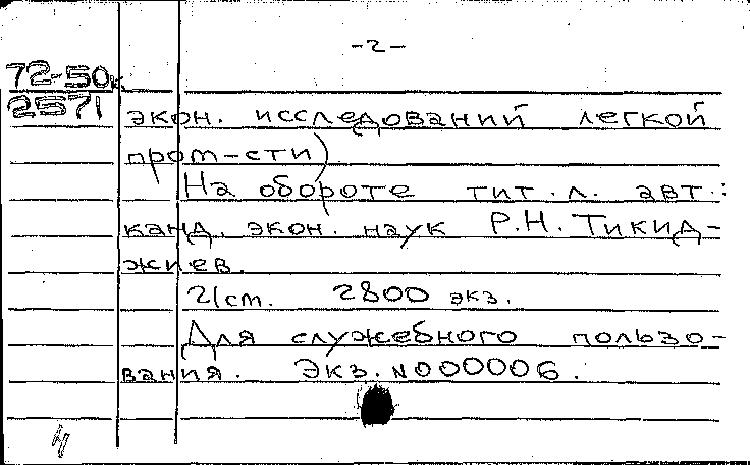 -2-
72-50к
2571
экон. исследований легкой
пром-сти).
На обороте тит. л. авт.:
канд. экон. наук Р.Н. Тикид-
жиев.
21см. 2800 экз.
Для служебного пользо-
вания. Экз. №000006.